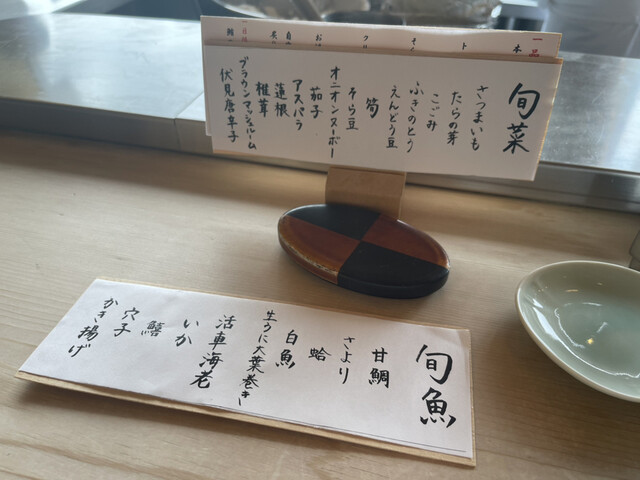 旬菜
さつまいも
たらの芽
こごみ
ふきのとう
えんどう豆
筍
そら豆
オニオンヌーボー
茄子
アスパラ
蓮根
椎茸
ブラウンマッシュルーム
伏見唐辛子
旬魚
甘鯛
さより
蛤
白魚
生うに大葉巻き
活車海老
いか
鱚
穴子
かき揚げ